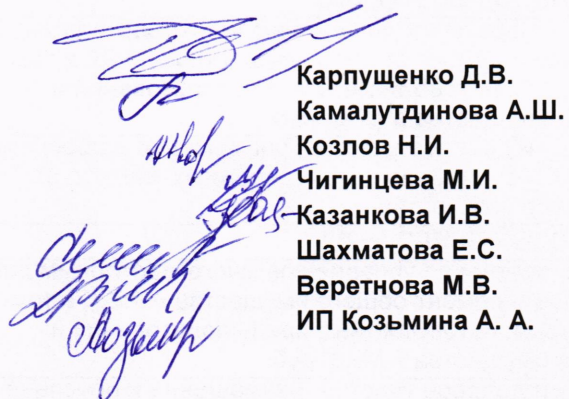 Карпущенко Д.В.
Камалутдинова А.Ш.
Козлов Н.И.
Чигинцева М.И.
Казанкова И.В.
Шахматова Е.С.
Веретнова М.В.
ИП Козьмина А. А.